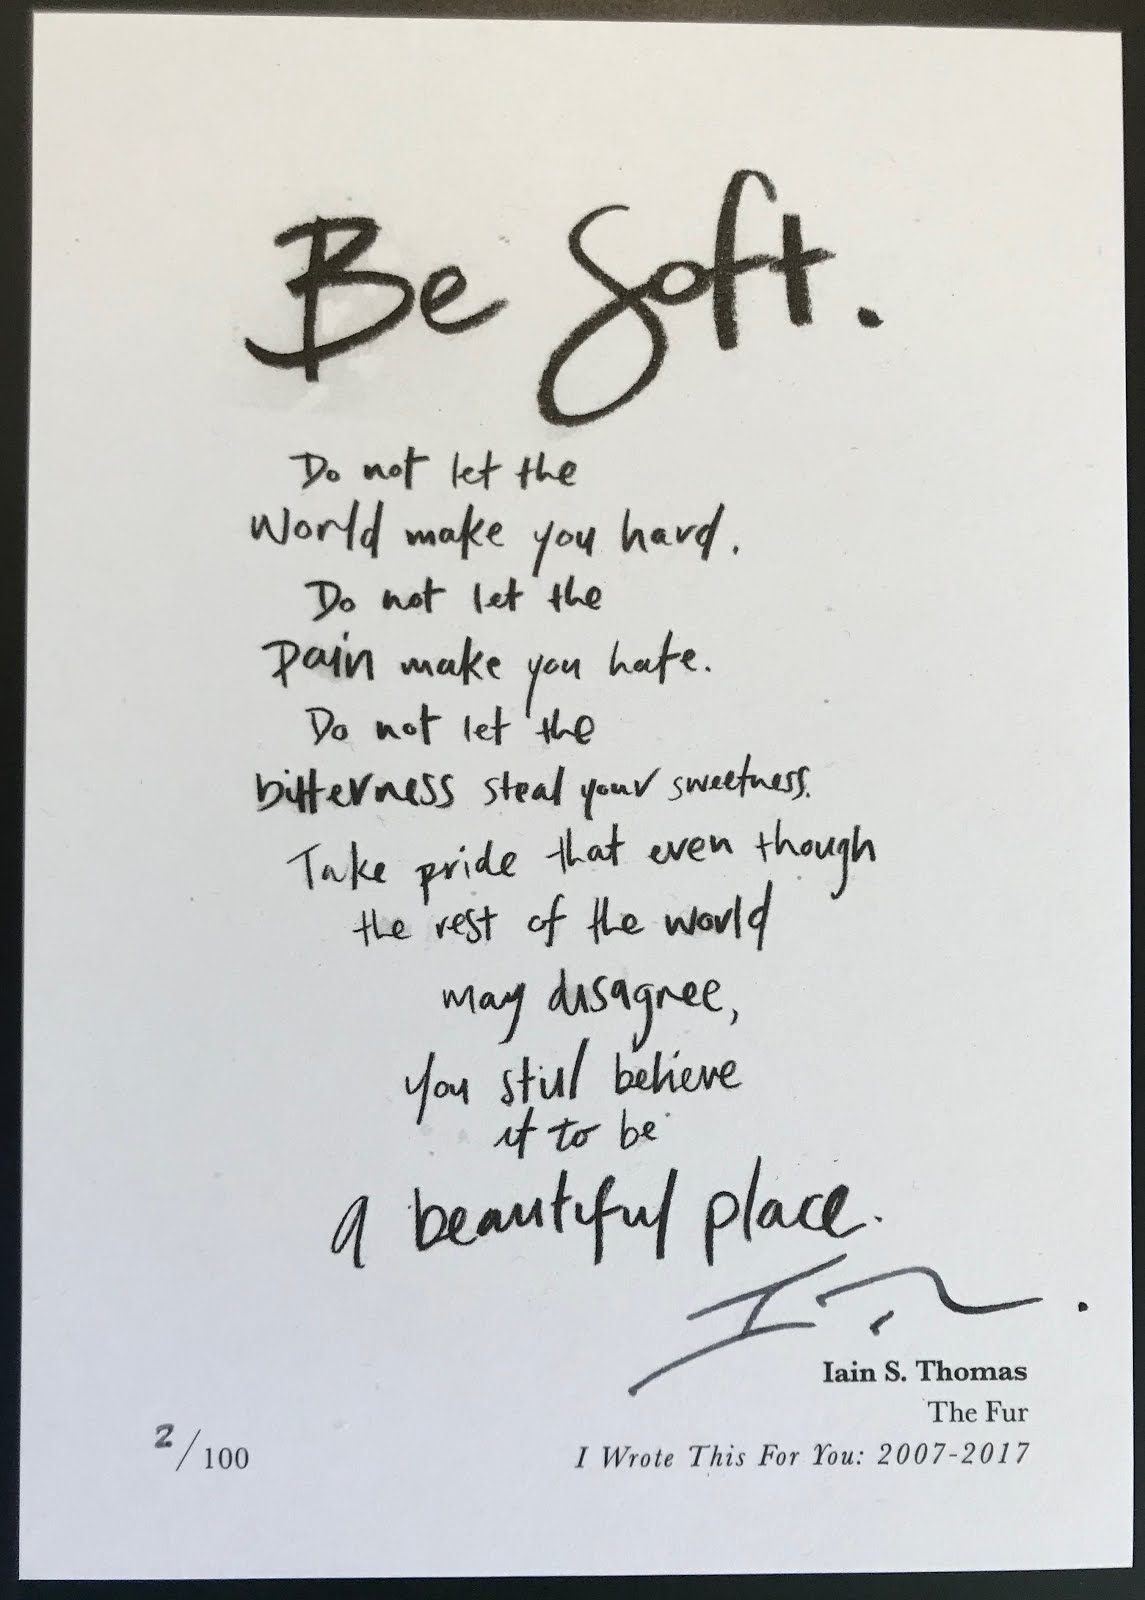 Be Soft.
Do not let the
World make you hard.
Do not let the
Pain make you hate.
Do not let the
bitterness steal your sweetness.
Take pride that even though
the rest of the world
may disagree,
you still believe
it to be
a beautiful place.
Iain S. Thomas
The Fur
I Wrote This For You: 2007-2017
2/100